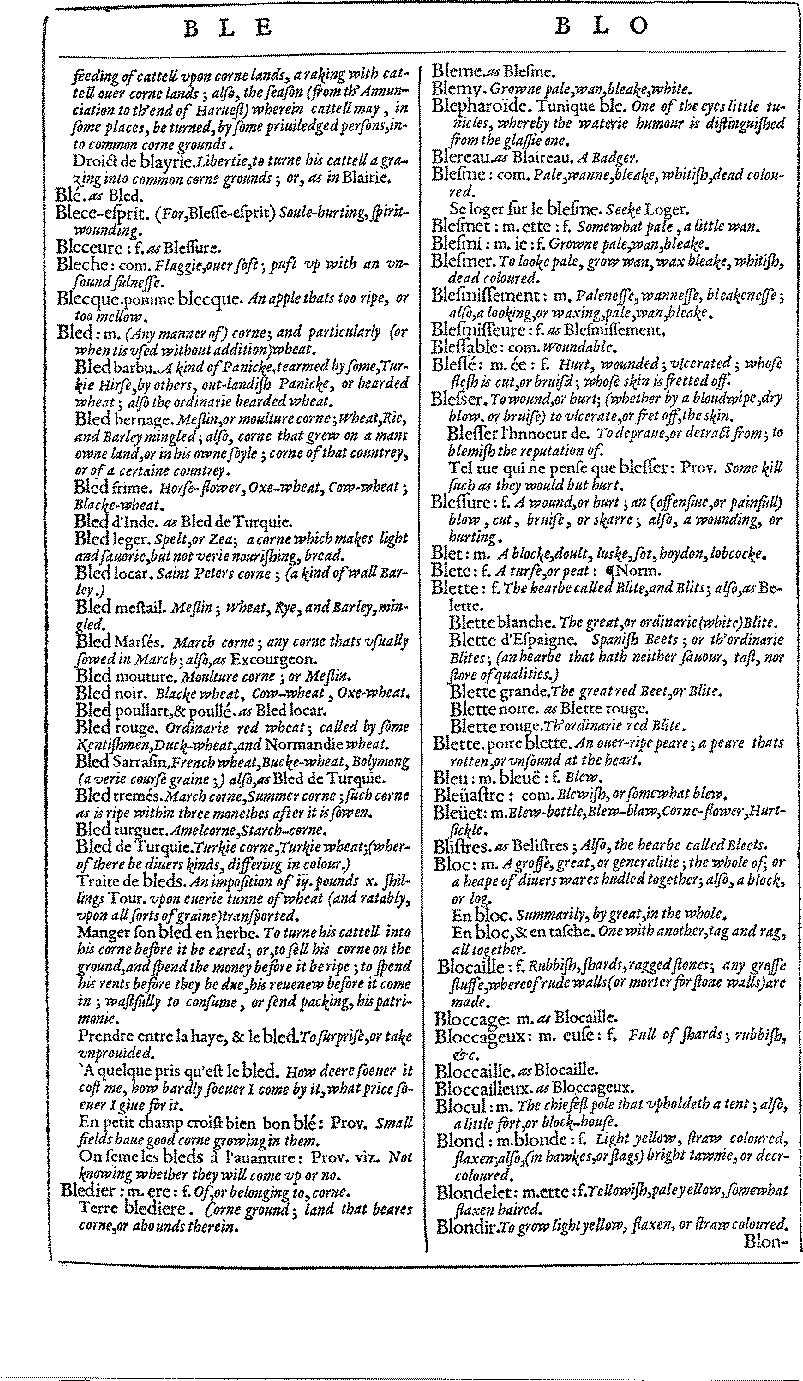 B L E
feeding of cattell vpon corne lands, a raking with cat-
tell ouer corne lands; alſo, the ſeaſon (from th'Annun-
ciation to th'end of Harueſt) wherein cattell may, in
ſome places, be turned, by ſome priuiledged perſons, in-
to common corne grounds.
Droict de blayrie. Libertie, to turne his cattell a gra-
zing into common corne grounds; or, as in Blairie.
Blé. as Bled.
Blece-eſprit. (For, Bleſſe-eſprit) Soule-hurting, ſpirit-
wounding.
Bleceure: f. as Bleſſure.
Bleche: com. Flaggie, ouer ſoft; puft vp with an vn-
ſound fulneſſe.
Blecque. pomme blecque. An apple thats too ripe, or
too mellow.
Bled: m. (Any manner of) corne; and particularly (or
when tis vſed without addition) wheat.
Bled barbu. A kind of Panicke, tearmed by ſome, Tur-
kie Hirſe, by others, out-landiſh Panicke, or bearded
wheat; alſo the ordinarie bearded wheat.
Bled bernage. Meſlin, or moulture corne; Wheat, Rie,
and Barley mingled; alſo, corne that grew on a mans
owne land, or in his owne ſoyle; corne of that countrey,
or of a certaine countrey.
Bled frime. Horſe-flower, Oxe-wheat, Cow-wheat;
Blacke-wheat.
Bled d'Inde. as Bled de Turquie.
Bled leger. Spelt, or Zea; a corne which makes light
and ſauorie, but not verie nouriſhing, bread.
Bled locar. Saint Peters corne; (a kind of wall Bar-
ley.)
Bled meſtail. Meſlin; Wheat, Rye, and Barley, min-
gled.
Bled Marſés. March corne; any corne thats vſually
ſowed in March; alſo, as Excourgeon.
Bled mouture. Moulture corne; or Meſlin.
Bled noir. Blacke wheat, Cow-wheat, Oxe-wheat.
Bled poullart, & poullé. as Bled locar.
Bled rouge. Ordinarie red wheat; called by ſome
Kentiſhmen, Duck-wheat, and Normandie wheat.
Bled Sarraſin, French wheat, Bucke-wheat, Bolymong
(a verie courſe graine;) alſo, as Bled de Turquie.
Bled tremés. March corne, Summer corne; ſuch corne
as is ripe within three monethes after it is ſowen.
Bled turguet. Amelcorne, Starch-corne.
Bled de Turquie. Turkie corne, Turkie wheat; (wher-
of there be diuers kinds, differing in colour.)
Traite de bleds. An impoſition of iij. pounds x. ſhil-
lings Tour. vpon euerie tunne of wheat (and ratably,
vpon all ſorts of graine) tranſported.
Manger ſon bled en herbe. To turne his cattell into
his corne before it be eared; or, to ſell his corne on the
ground, and ſpend the money before it be ripe; to ſpend
his rents before they be due, his reuenew before it come
in; waſtfully to conſume, or ſend packing, his patri-
monie.
Prendre entre la haye, & le bled. To ſurpriſe, or take
vnprouided.
A quelque pris qu'eſt le bled. How deere ſoeuer it
coſt me, how hardly ſoeuer I come by it, what price ſo-
euer I giue for it.
En petit champ croiſt bien bon blé: Prov. Small
fields haue good corne growing in them.
On ſeme les bleds à l'auanture: Prov. viz. Not
knowing whether they will come up or no.
Bledier: m. ere: f. Of, or belonging to, corne.
Terre blediere. Corne ground; land that beares
corne, or abounds therein.
B L O
Bleme. as Bleſme.
Blemy. Growne pale, wan, bleake, white.
Blepharoide. Tunique ble. One of the eyes little tu-
nicles, whereby the waterie humour is diſtinguiſhed
from the glaſſie one.
Blereau. as Blaireau. A Badger.
Bleſme: com. Pale, wanne, bleake, whitiſh, dead colou-
red.
Se loger ſur le bleſme. Seeke Loger.
Bleſmet: m. ette: f. Somewhat pale, a little wan.
Bleſmi: m. ie: f. Growne pale, wan, bleake.
Bleſmer. To looke pale, grow wan, wax bleake, whitiſh,
dead coloured.
Bleſmiſſement: m. Paleneſſe, wanneſſe, bleakeneſſe;
alſo, a looking, or waxing, pale, wan, bleake.
Bleſmiſſeure: f. as Bleſmiſſement.
Bleſſable: com. Woundable.
Bleſſé: m. ée: f. Hurt, wounded; vlcerated; whoſe
fleſh is cut, or bruiſ'd; whoſe skin is fretted off.
Bleſſer. To wound, or hurt; (whether by a bloudwipe, dry
blow, or bruiſe) to vlcerate, or fret off, the skin.
Bleſſer l'hnnocur de. To depraue, or detract from; to
blemiſh the reputation of.
Tel tue qui ne penſe que bleſſer: Prov. Some kill
ſuch as they would but hurt.
Bleſſure: f. A wound, or hurt; an (offenſiue, or painfull)
blow, cut, bruiſe, or skarre; alſo, a wounding, or
hurting.
Blet: m. A blocke, doult, luske, ſot, hoydon, lobcocke.
Blete: f. A turfe, or peat: ¶Norm.
Blette: f. The hearbe called Blite, and Blits; alſo, as Be-
lette.
Blette blanche. The great, or ordinarie (white) Blite.
Blette d'Eſpaigne. Spaniſh Beets; or th'ordinarie
Blites; (an hearbe that hath neither ſauour, taſt, nor
ſtore of qualities.)
Blette grande. The great red Beet, or Blite.
Blette noire. as Blette rouge.
Blette rouge. Th'ordinarie red Blite.
Blette. poire blette. An ouer-ripe peare; a peare thats
rotten, or vnſound at the heart.
Bleu: m. bleuë: f. Blew.
Bleüaſtre: com. Blewiſh, or ſomewhat blew.
Bleüet: m. Blew-bottle, Blew-blaw, Corne-flower, Hurt-
ſickle.
Bliſtres. as Beliſtres; Alſo, the hearbe called Bleets.
Bloc: m. A groſſe, great, or generalitie; the whole of; or
a heape of diuers wares hudled together; alſo, a block,
or log.
En bloc. Summarily, by great, in the whole.
En bloc, & en taſche. One with another, tag and rag,
all together.
Blocaille: f. Rubbiſh, ſhards, ragged ſtones; any groſſe
ſtuffe, whereof rude walls (or morter for ſtone walls) are
made.
Bloccage: m. as Blocaille.
Bloccageux: m. euſe: f. Full of ſhards; rubbiſh,
&c.
Bloccaille. as Blocaille.
Bloccailleux. as Bloccageux.
Blocul: m. The chiefeſt pole that vpholdeth a tent; alſo,
a little fort, or block-houſe.
Blond: m. blonde: f. Light yellow, ſtraw coloured,
flaxen; alſo, (in hawkes, or ſtags) bright tawnie, or deer-
coloured.
Blondelet: m. ette: f. Yellowiſh, pale yellow, ſomewhat
flaxen haired.
Blondir. To grow light yellow, flaxen, or ſtraw coloured.
Blon-